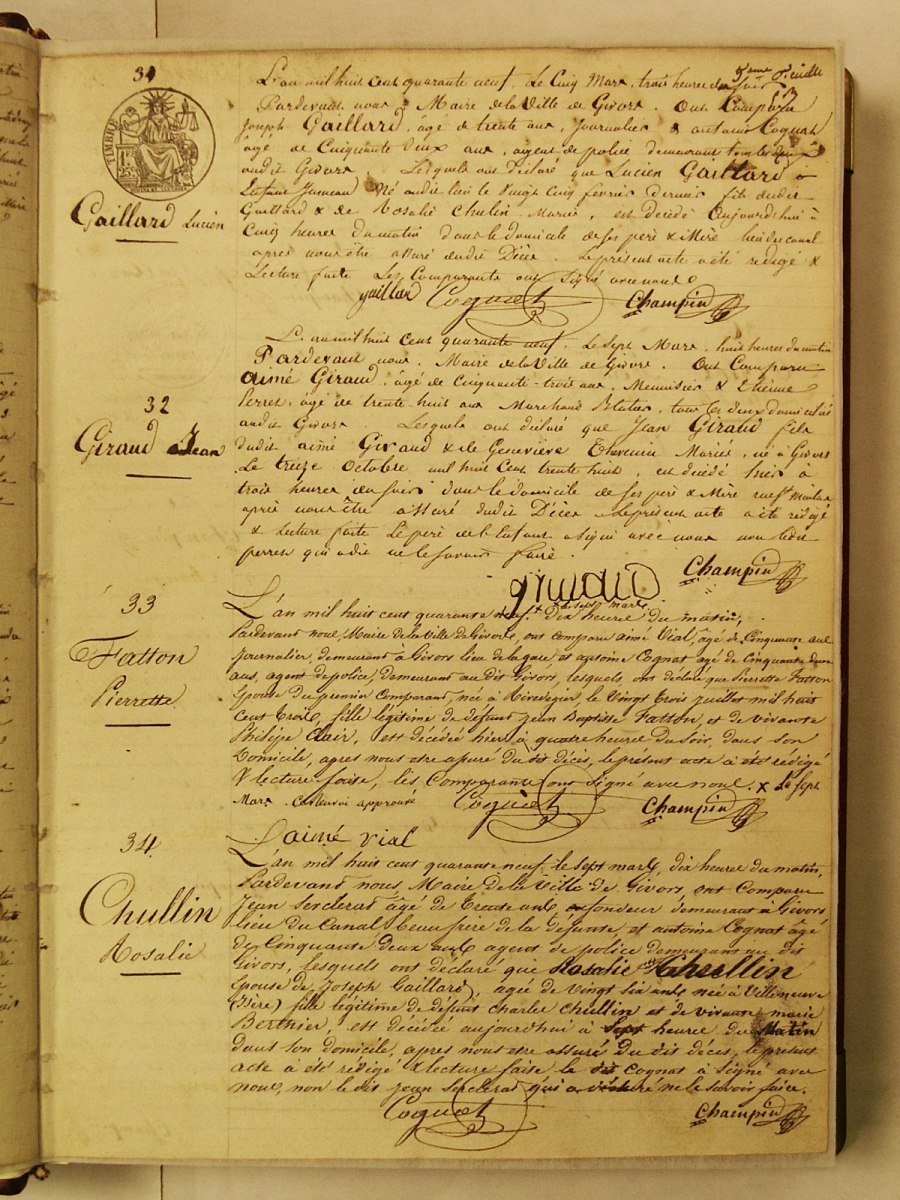 5eme feuille
31
TIMBRE
Gaillard Lucien
L'an mil huit cent quarante neuf, Le Cinq Mars, trois heures du soir
Pardevant nous, Maire de la Ville de Givors. Ont Comparu
Joseph Gaillard, âgé de trente ans, Journalier & antoine Cognat
âgé de Cinquante deux ans, agent de police demeurant tous les deux
audit Givors. Lesquels ont déclaré que Lucien Gaillard
L'enfant Jumeau Né audit lieu le Vingt Cinq février dernier fils dudit
Gaillard & de Rosalie Chulin Mariés, est décédé Aujourd'hui à
Cinq heures du matin dans le domicile de ses père & Mère lieu du canal
après nous être assuré dudit Décès. Le présent acte a été rédigé &
Lecture faite Les Comparants ont Signé avec nous
gaillar Cognet Champin
32
Giraud Jean
L'an mil huit Cent quarante neuf, Le Sept Mars, huit heures du matin
Pardevant nous, Maire de la Ville de Givors. Ont Comparu
aimé Giraud, âgé de Cinquante-trois ans, Meunisier & Etienne
Perret, âgé de trente-huit ans Marchand, tous les deux domiciliés
audit Givors Lesquels ont déclaré que Jean Giraud fils
dudit aimé Giraud & de Geneviève Thevenin Mariés, né à Givors
Le treize Octobre mil huit Cent trente huit, est décédé hier à
trois heures du soir dans le domicile de ses père & Mère
après nous être assuré dudit Décès Le présent acte a été rédigé
& Lecture faite Le père de l'Enfant a signé avec nous non ledit
perret qui a dit ne le savoir faire.
giraud Champin
33
Fatton
Pierrette
L'an mil huit cent quarante neuf + Dix heures du matin,
+ le sept mars
Pardevant nous, Maire de la Ville de Givors, ont comparu aimé Vial, âgé de Cinquante ans
journalier, demeurant à Givors lieu de la gare, et antoine Cognat agé de Cinquante deux
ans, agent de police, demeurant au dit Givors, lesquels ont déclaré que Pierrette Fatton
Epouse du premier Comparant, née à Riverie, le Vingt Trois juillet mil huit
Cent Trois, fille légitime de défunt Jean Baptiste Fatton, et de vivante
Philipe Clair, est décédée hier à quatre heures du Soir, dans son
Domicile, apres nous etre assuré du dit décès, le présent acte a été rédigé
& lecture faite, les Comparants ont signé avec nous. x Le Sept
Mars Ci renvoi approuvé Cognet Champin
aimé vial
34
Chullin
Rosalie
L'an mil huit cent quarante neuf le Sept mars, dix heures du matin,
Pardevant nous, Maire de la Ville de Givors, ont Comparu
Jean Serclerat âgé de Trente ans, fondeur demeurant à Givors
lieu du Canal, beau frère de la défunte, et antoine Cognat âgé
de Cinquante deux ans agent de police demeurant au dit
Givors, lesquels ont déclaré que Rosalie Chullin
Epouse de Joseph Gaillard, agée de vingt six ans née à Villeneuve
(Isère) fille légitime de défunt Charles Chullin et de vivante marie
Berthier, est décédée aujourd'hui à Sept heures du Matin
dans son domicile, apres nous etre assuré du dit décès, le présent
acte a été rédigé & lecture faite, le dit Cognat a Signé avec
nous, non le dit jean Serclerat qui a déclaré ne le savoir faire.
Cognet Champin